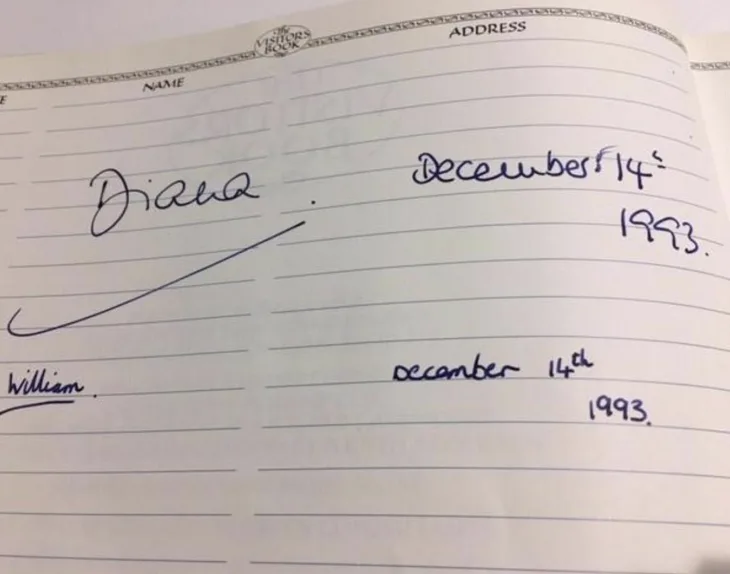 The
VISITORS
BOOK
NAME
ADDRESS
Diana
December 14th
1993.
William.
December 14th
1993.